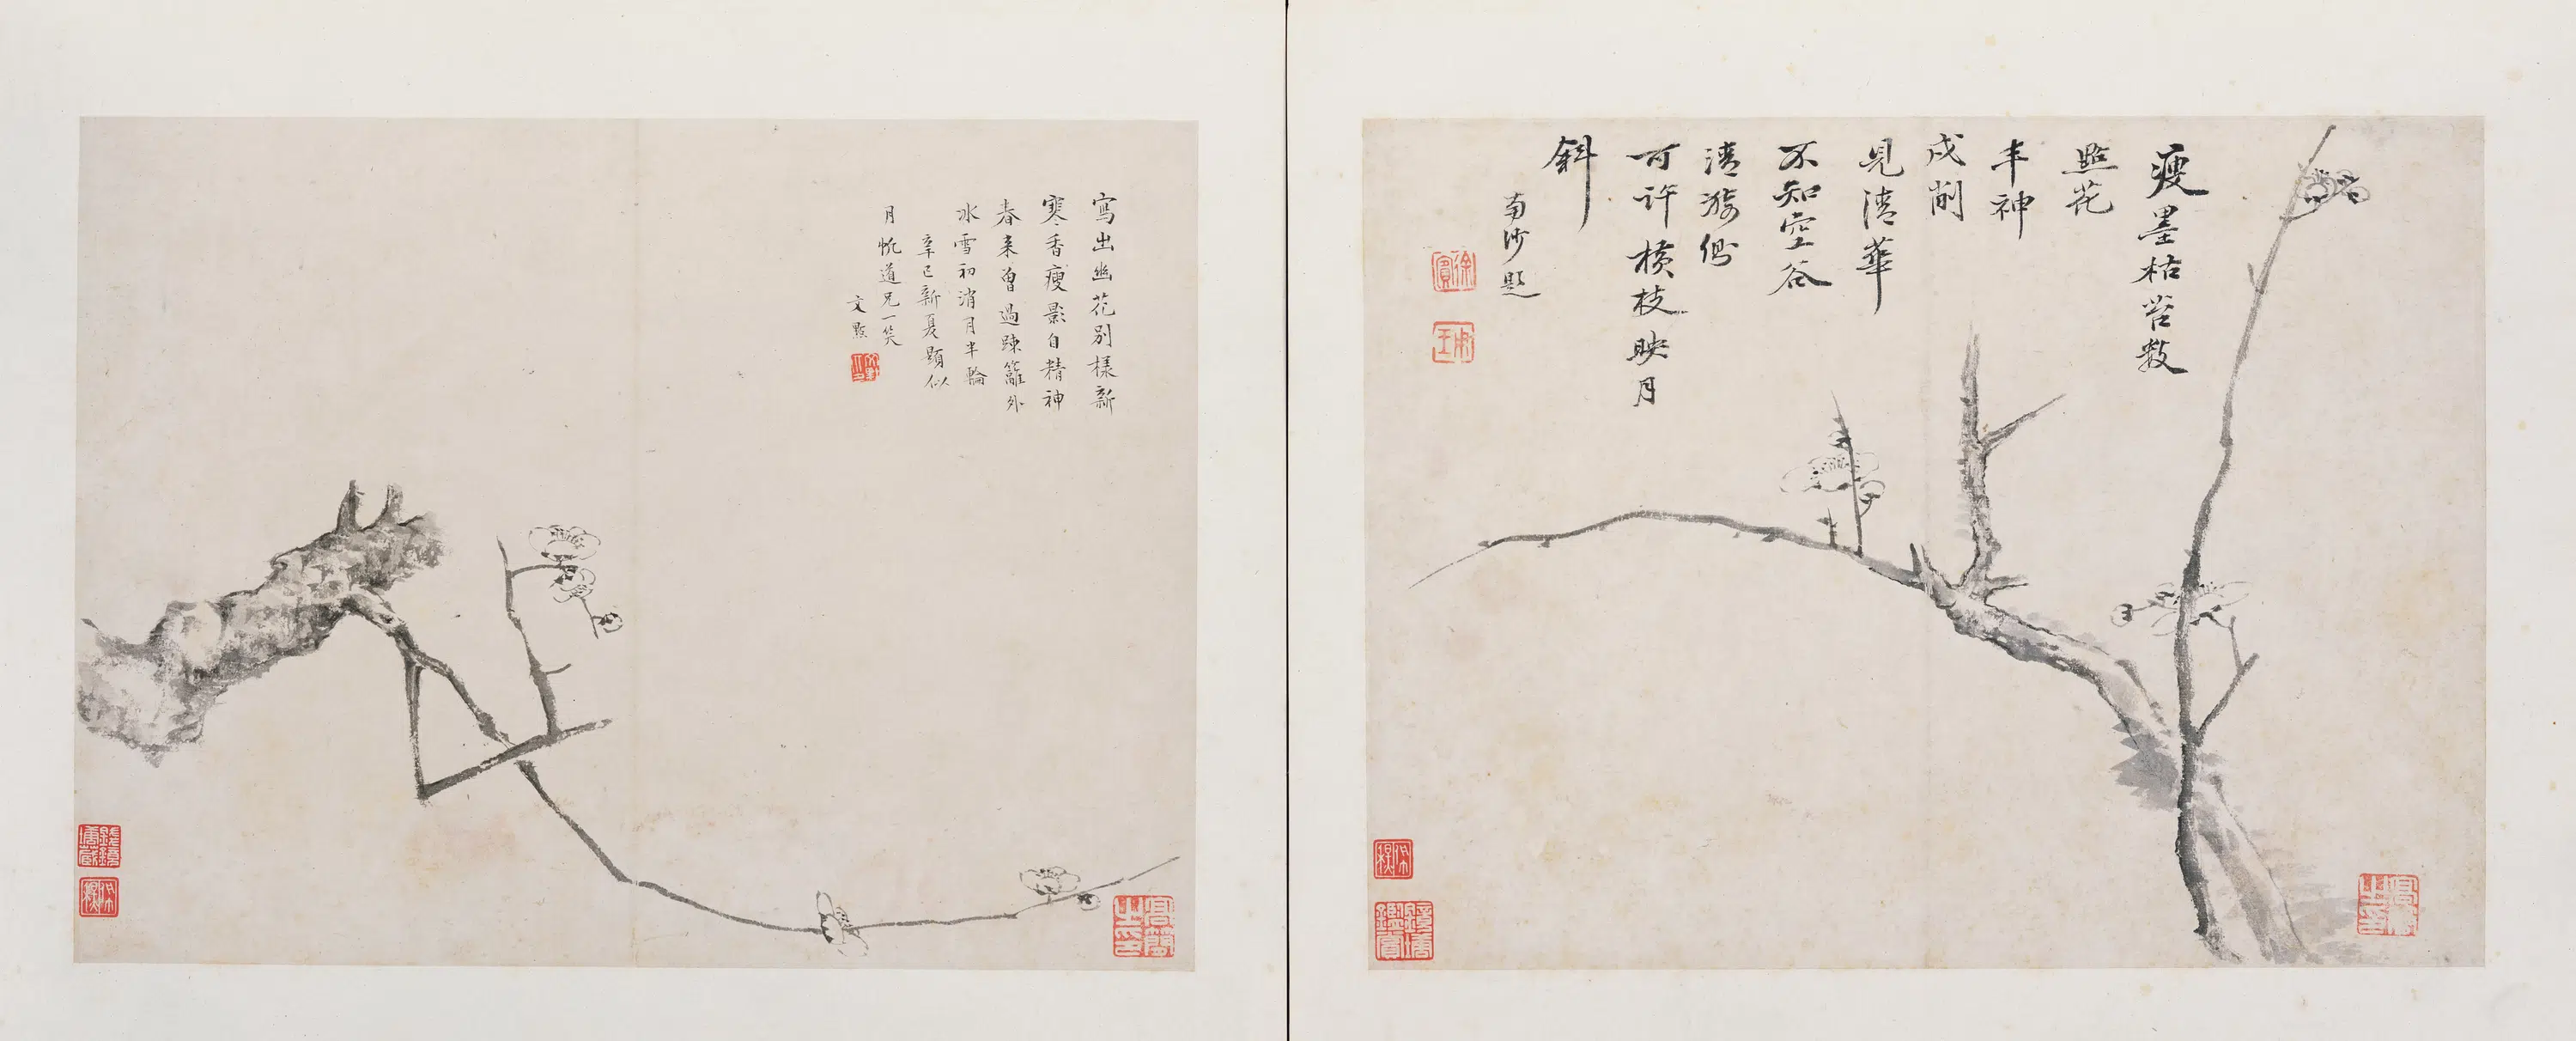 瘦墨枯苔數
點花
丰神
戍削
見清華
不知空谷
清漪側
可許橫枝映月
斜
南沙題
徐賓
寫出幽花別樣新
寒香瘦影自精神
春來曾過疎籬外
冰雪初消月半輪
辛巳新夏題似
月忱道兄一笑
文點
高簡之印